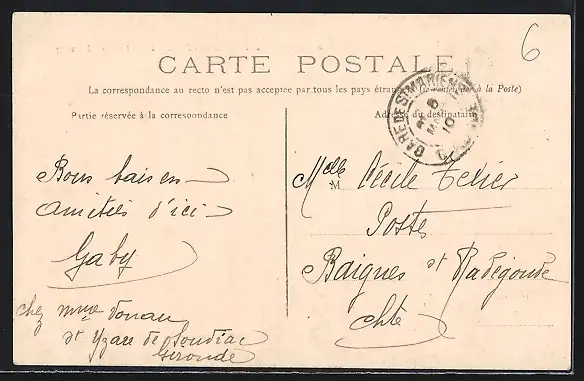 6
CARTE POSTALE
La correspondance au recto n'est pas acceptée par tous les pays étrangers (se renseigner à la Poste)
Partie réservée à la correspondance
Adresse du destinataire
GARE DE ST MARIENS
8
10
Bons baisers
Amitiés d'ici
Gaby
chez mme Donau
st Yzare de Soudiac
Gironde
M
Melle Cécile Texier
Poste
Baignes st Radégonde
Chte